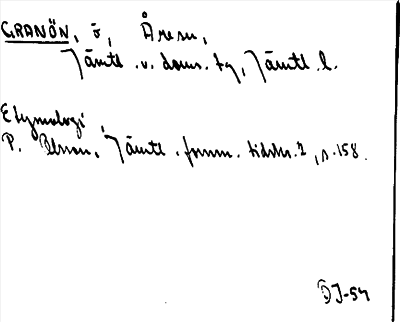 GRANÖN, ö, Åresn,
Jämtl. v. doms. tg, Jämtl. l.
Etymologi
P. Olsson, Jämtl. fornm. tidskr. 2, s. 158.
ÖJ-54